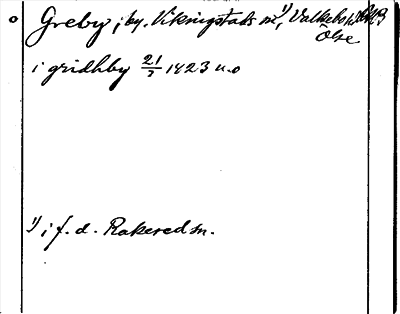 Greby, by. Vikingstads sn,¹⁾ Valkebo hd
Ög
i gridhby 21/2 1423 u.o
¹⁾ i f. d. Rakered sn.